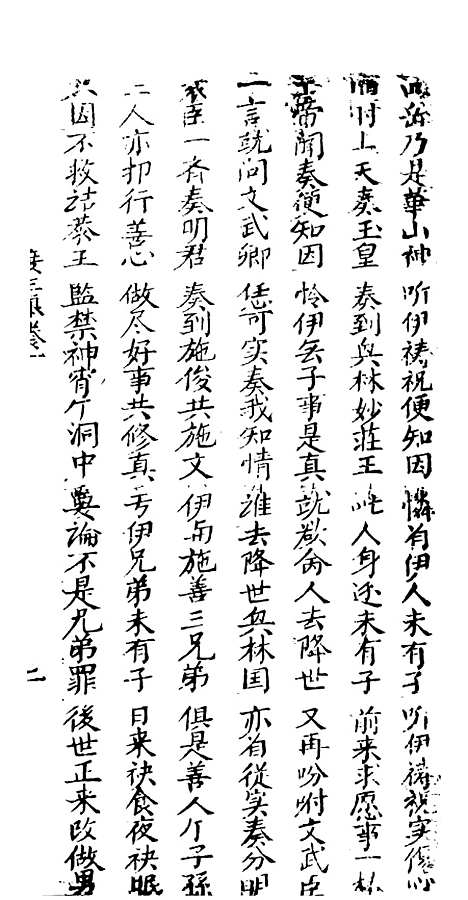 西岳乃是華山神 听伊祷祝便知因 憐有伊人未有子 听伊祷祝实伤心
䨇时上天奏玉皇 奏到兴林妙荘王 人身还未有子 前来求愿事一桩
玉帝闻奏便知因 怜伊无子事是真 就欲命人去降世 又再吩咐文武臣
一言就问文武卿 恁可实奏我知情 谁去降世兴林国 亦有從实奏分明
臣一齐奏明君 奏到施俊共施文 伊有施善三兄弟 俱是善人个子孫
三人亦抑行善心 做尽好事共修真 亏伊兄弟未有子 日来袂食夜袂眠
只因不救诘恭王 監禁神宵个洞中 要論不是兄弟罪 後世正来改做男
卷一
二